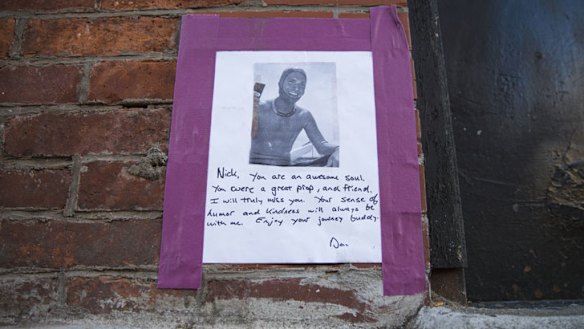 Nick, You are an awesome soul.
You were a great and friend.
I will truly miss you. Your sense of
humor and kindness will always be
with me. Enjoy your journey buddy.
Dan